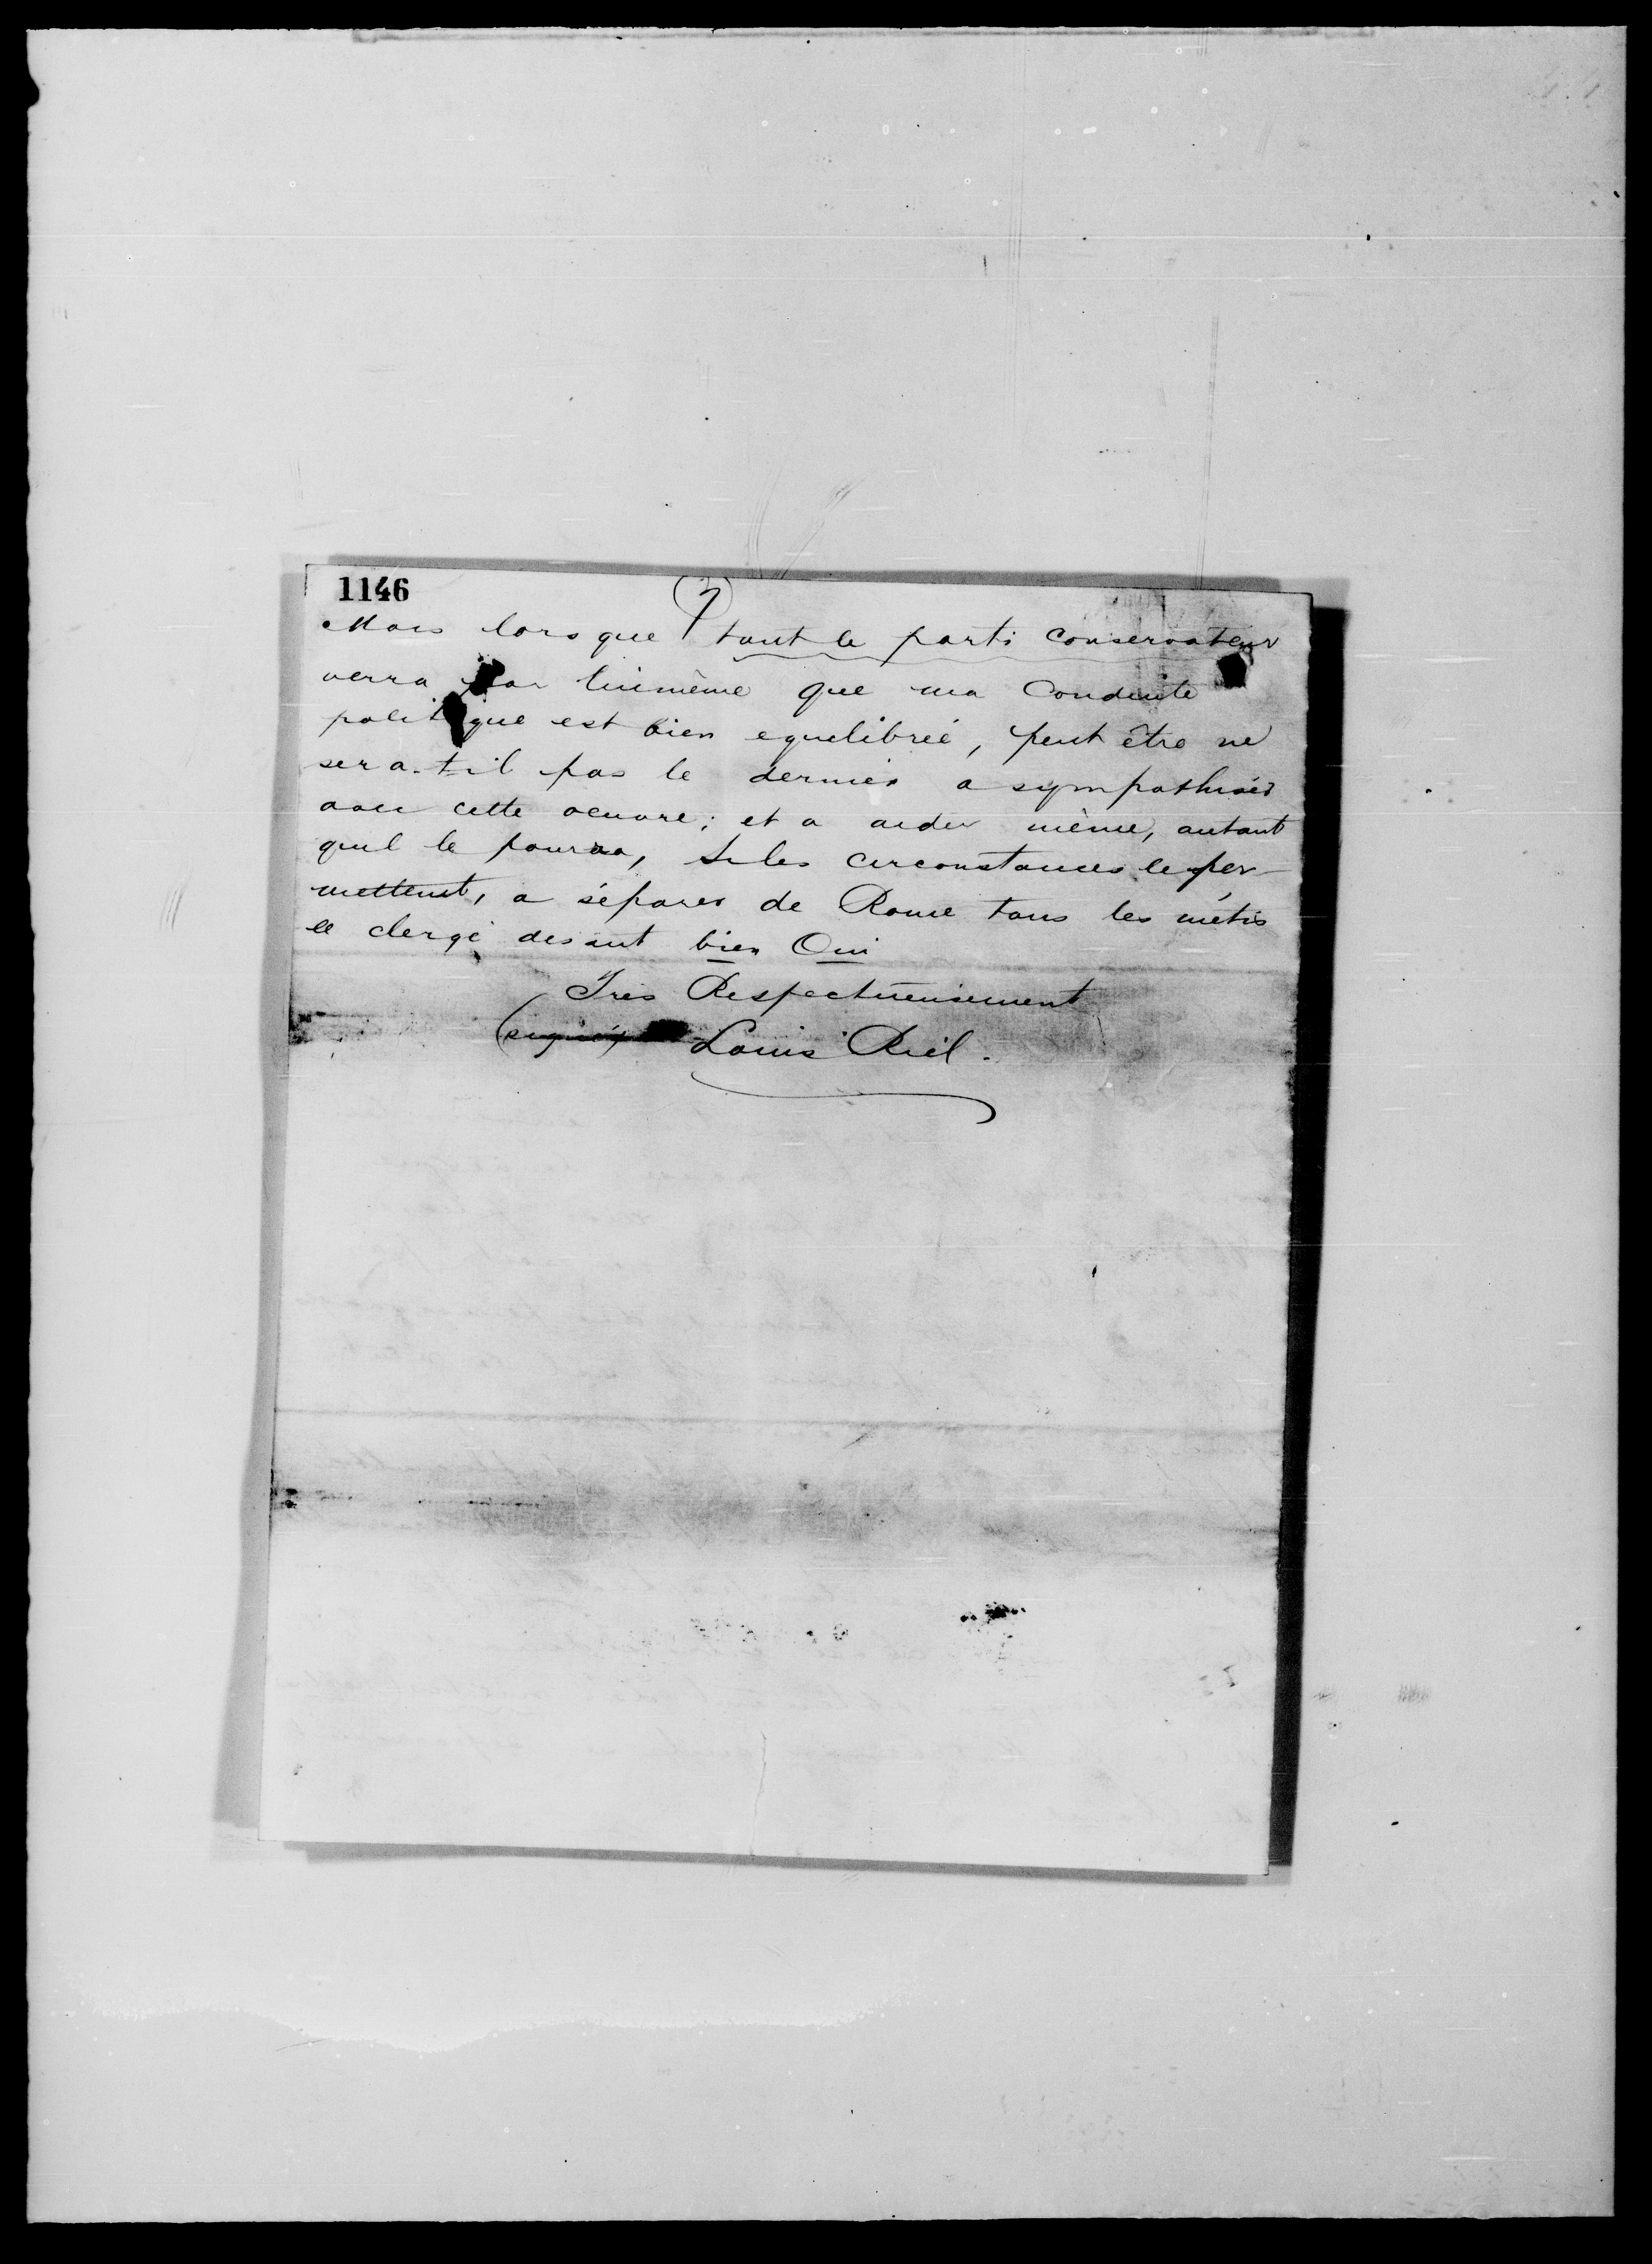 1146
3
Mais lorsque tout le parti conservateur
verra par luimême que ma conduite
politique est bien equelibrée, peut être ne
sera-t-il pas le dernier a sympathiser
avec cette oeuvre; et a aider même, autant
quil le pourra, si les circonstances le per-
mettent, a séparer de Rome tous les métis
le clergé desant bien Oui
Tres Respectueusement
(signé) Louis Riel.